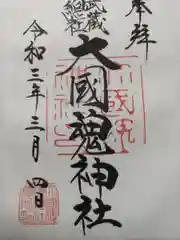 奉拝
武蔵
総社
大國魂神社
令和三年三月四日